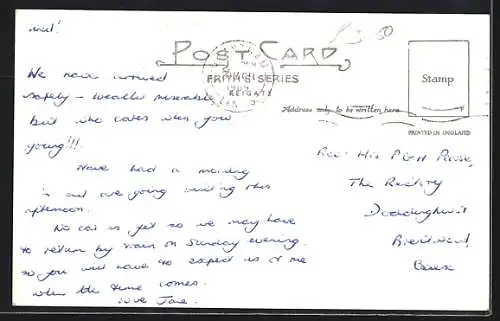 Wed!
We have arrived
safely – weather miserable
but who cares when you
young!!!
Have had a morning
in and are going visiting this
afternoon.
No car as yet so we may have
to return by train on Sunday evening.
so you will have to expect us or me
when the time comes.
love Jane.
POST CARD
FRITH'S SERIES
REIGATE
Stamp
Address only to be written here
PRINTED IN ENGLAND
The Rectory
Doddinghurst
Brentwood,
Essex